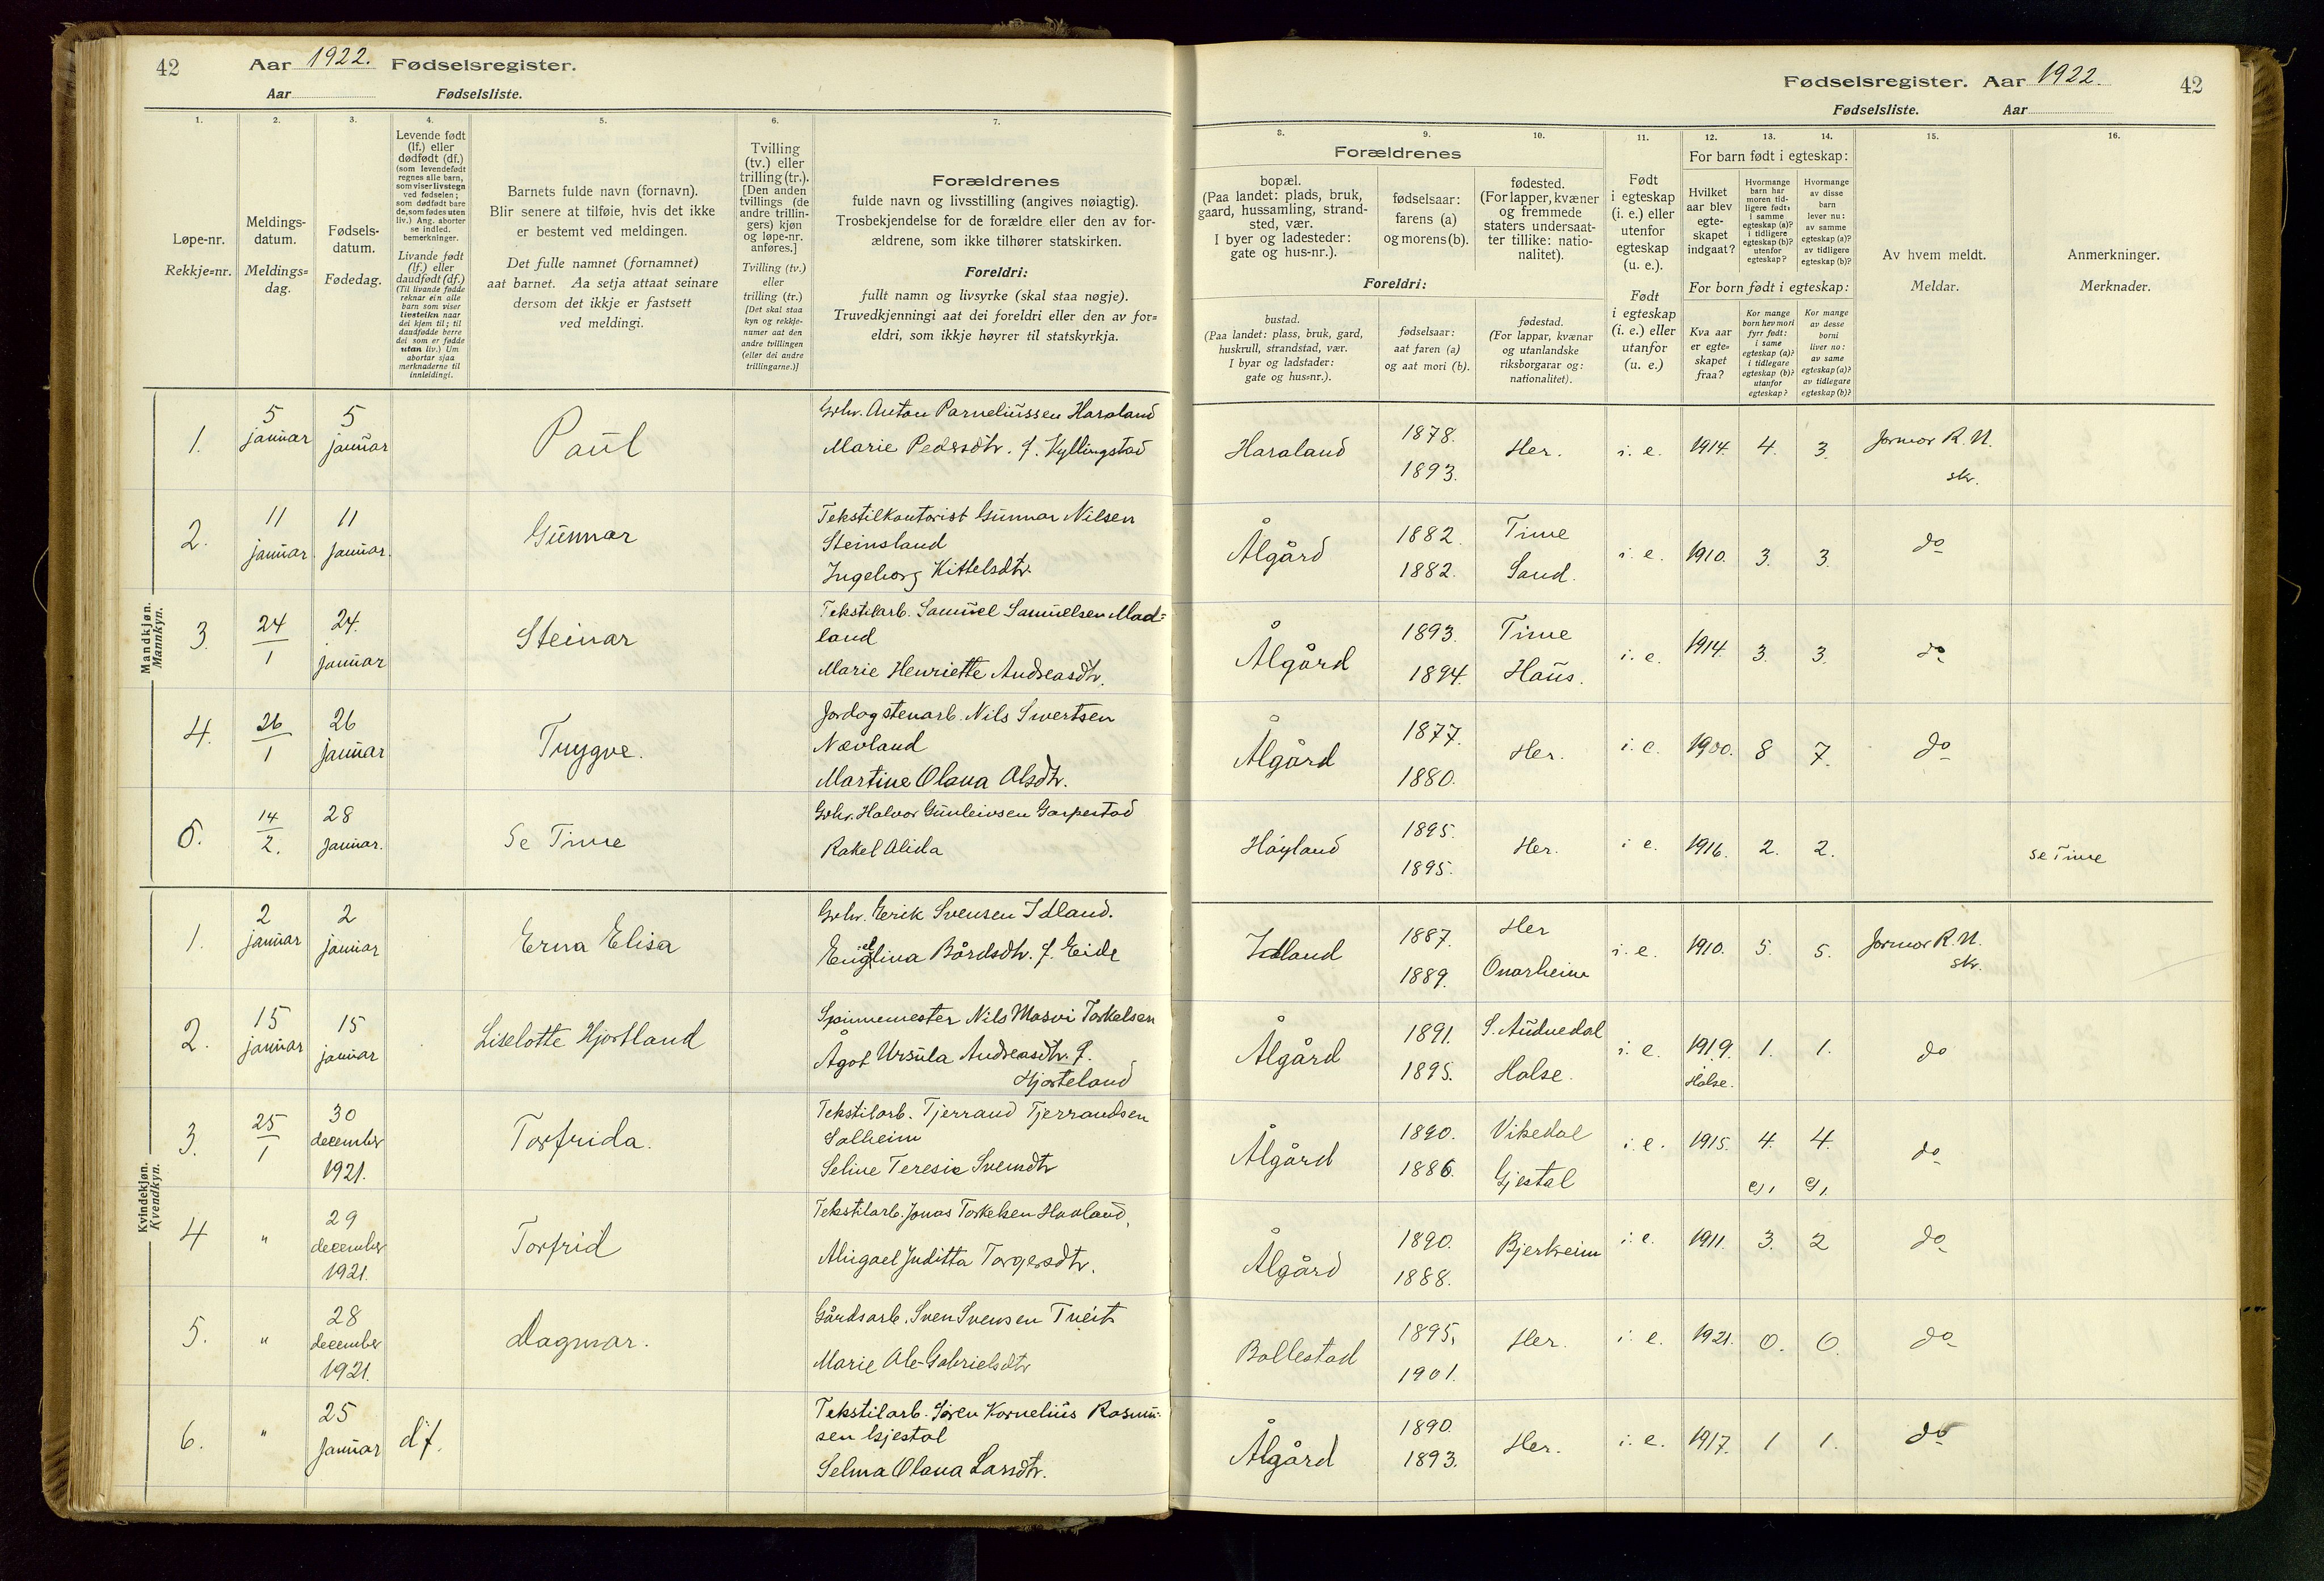 42 Aar 1922. Fødselsregister.
Aar Fødselsliste.
1. 2. 3. 4. 5. 6. 7.
Løpe-nr.
Rekkje=nr.
Meldings-
datum.
Meldings=
dag.
Fødsels-
datum.
Fødedag.
Levende født
(lf.) eller
dødfødt (df.)
(som levendefødt
regnes alle barn,
som viser livstegn
ved fødselen;
som dødfødt bare
de, som fødes uten
liv.) Ang. aborter
se indled.
bemerkninger.
Livande født
(lf.) eller
daudfødt (df.)
(Til livande fødde
reknar ein alle
barn som viser
livsteikn naar
dei kjem til; til
daudfødde berre
dei som er fødde
utan liv.) Um
abortar sjaa
merknaderne til
innleidingi.
Barnets fulde navn (fornavn).
Blir senere at tilføie, hvis det ikke
er bestemt ved meldingen.
Det fulle namnet (fornamnet)
aat barnet. Aa setja attaat seinare
dersom det ikkje er fastsett
ved meldingi.
Tvilling
(tv.) eller
trilling (tr.).
[Den anden
tvillings (de
andre trillin-
gers) kjøn
og løpe-nr.
anføres.]
Tvilling (tv.)
eller
trilling (tr.)
[Det skal staa
kyn og rekkje-
numer aat den
andre tvillingen
(eller dei andre
trillingarne.)]
Forældrenes
fulde navn og livsstilling (angives nøiagtig).
Trosbekjendelse for de forældre eller den av for-
ældrene, som ikke tilhører statskirken.
Foreldri:
fullt namn og livsyrke (skal staa nøgje).
Truvedkjenningi aat dei foreldri eller den av for=
eldri, som ikkje høyrer til statskyrkja.
Mandkjøn.
Mannkyn.
1. 5 januar 5 januar Paul
Grbr. Anton Parneliussen Haraland
Marie Pedersdtr. f. Kyllingstad
2. 11 januar. 11 januar. Gunnar
Tekstilkontorist Gunnar Nilsen
Steinsland
Ingeborg Kittelsdtr.
3. 24/1 24. januar Steinar
Tekstilarb. Samuel Samuelsen Mad=
land
Marie Henriette Andreasdtr.
4. 26/1 26 januar Trygve.
Jordogstenarb. Nils Sivertsen
Nævland
Martine Olava Olsdtr.
5. 14/2. 28 januar. Se Time
Grbr. Halvor Gunleivsen Garpestad
Rakel Alida
Kvindekjøn.
Kvendkyn.
1. 2 januar 2 januar Erna Elisa
Grbr. Eerik Svensen Idland.
Bårdsdtr. f. Eide
2. 15 januar 15 januar Liselotte Hjortland
Spinnemester Nils Masvi Torkelsen
Ågot Ursula Andreasdtr. f.
Hjorteland
3. 25/1 30 december 1921. Torfrida.
Tekstilarb. Tjerrand Tjerrandsen
Solheim
Seline Teresie Svensdtr
4 " 29 december 1921. Torfrid
Tekstilarb. Jonas Torkelsen Hovland,
Abigael Juditta Torgersdtr.
5. " 28 december 1921. Dagmar.
Gårdsarb. Sven Svensen Tveit
Marie Ale-Gabrielsdtr
6. " 25 januar df.
Tekstilarb. Søren Kornelius Rasmus-
sen Gjestal
Selma Olava Larsdtr.
Fødselsregister. Aar 1922. 42
Fødselsliste. Aar
8. 9. 10. 11. 12. 13. 14. 15. 16.
Forældrenes
bopæl.
(Paa landet: plads, bruk,
gaard, hussamling, strand-
sted, vær.
I byer og ladesteder:
gate og hus-nr.).
fødselsaar:
farens (a)
og morens (b).
fødested.
(For lapper, kvæner
og fremmede
staters undersaat-
ter tillike: natio-
nalitet).
Foreldri:
bustad.
(Paa landet: plass, bruk, gard,
huskrull, strandstad, vær.
I byar og ladstader:
gate og hus=nr.).
fødselsaar:
aat faren (a)
og aat mori (b).
fødestad.
(For lappar, kvænar
og utanlandske
riksborgarar og:
nationalitet).
Født
i egteskap
(i. e.) eller
utenfor
egteskap
(u. e.).
Født
i egteskap
(i. e.) eller
utanfor
egteskap
(u. e.)
For barn født i egteskap:
Hvilket
aar blev
egte-
skapet
indgaat?
Hvormange
barn har
moren tid-
ligere født:
i samme
egteskap (a)?
i tidligere
egteskap (b)?
utenfor
egteskap?
Hvormange
av disse
barn
lever nu:
av samme
egteskap (a)?
av tidligere
egteskap (b)?
For born født i egteskap:
Kva aar
er egte=
skapet
fraa?
Kor mange
born hev mori
fyrr født:
i same
egteskap (a)?
i tidlegare
egteskap (b)?
utanfor
egteskap?
Kor mange
av desse
borni
liver no:
av same
egteskap (a)?
av tidlegare
egteskap (b)?
Av hvem meldt.
Meldar.
Anmerkninger.
Merknader.
Haraland 1878. 1893. Her. i. e. 1914. 4. 3. Jormor R. N. skr.
Ålgård 1882. 1882. Time Sand. i. e. 1910. 3. 3. do
Ålgård 1893. 1894. Time Haus. i. e. 1914. 3. 3. do
Ålgård 1877. 1880. Her. i. e. 1900. 8 7. do
Høyland 1895. 1895. Her. i e. 1916. 2. 2. se Time
Idland 1887. 1889. Her Onarheim i. e. 1910. 5. 5. Jormor R. N. skr.
Ålgård 1891. 1895. S. Audnedal Halse. i. e. 1919. Halse. 1. 1. do
Ålgård 1890. 1886. Vikedal Gjestal i. e. 1915. 4. 4. do
Ålgård 1890. 1888. Bjerkreim i. e. 1911. 3. 2 do
Bollestad 1895. 1901. Her. i. e. 1921. 0. 0. do
Ålgård 1890. 1893. Her. i. e. 1917. 1 1. do